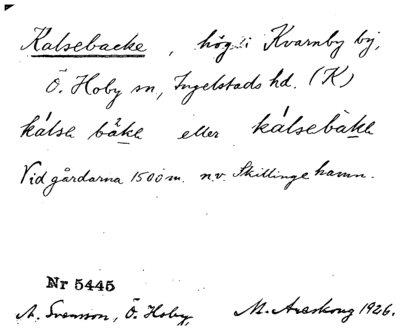 Kalsebacke, hög i Kvarnby by,
Ö. Hoby sn, Ingelstads hd. (K)
kálsebàke eller kálsebàke
Vid gårdarna 1500 m. n.v. Skillinge hamn.
Nr 5445
A. Svensson, Ö. Hoby, M. Areskoug 1926.